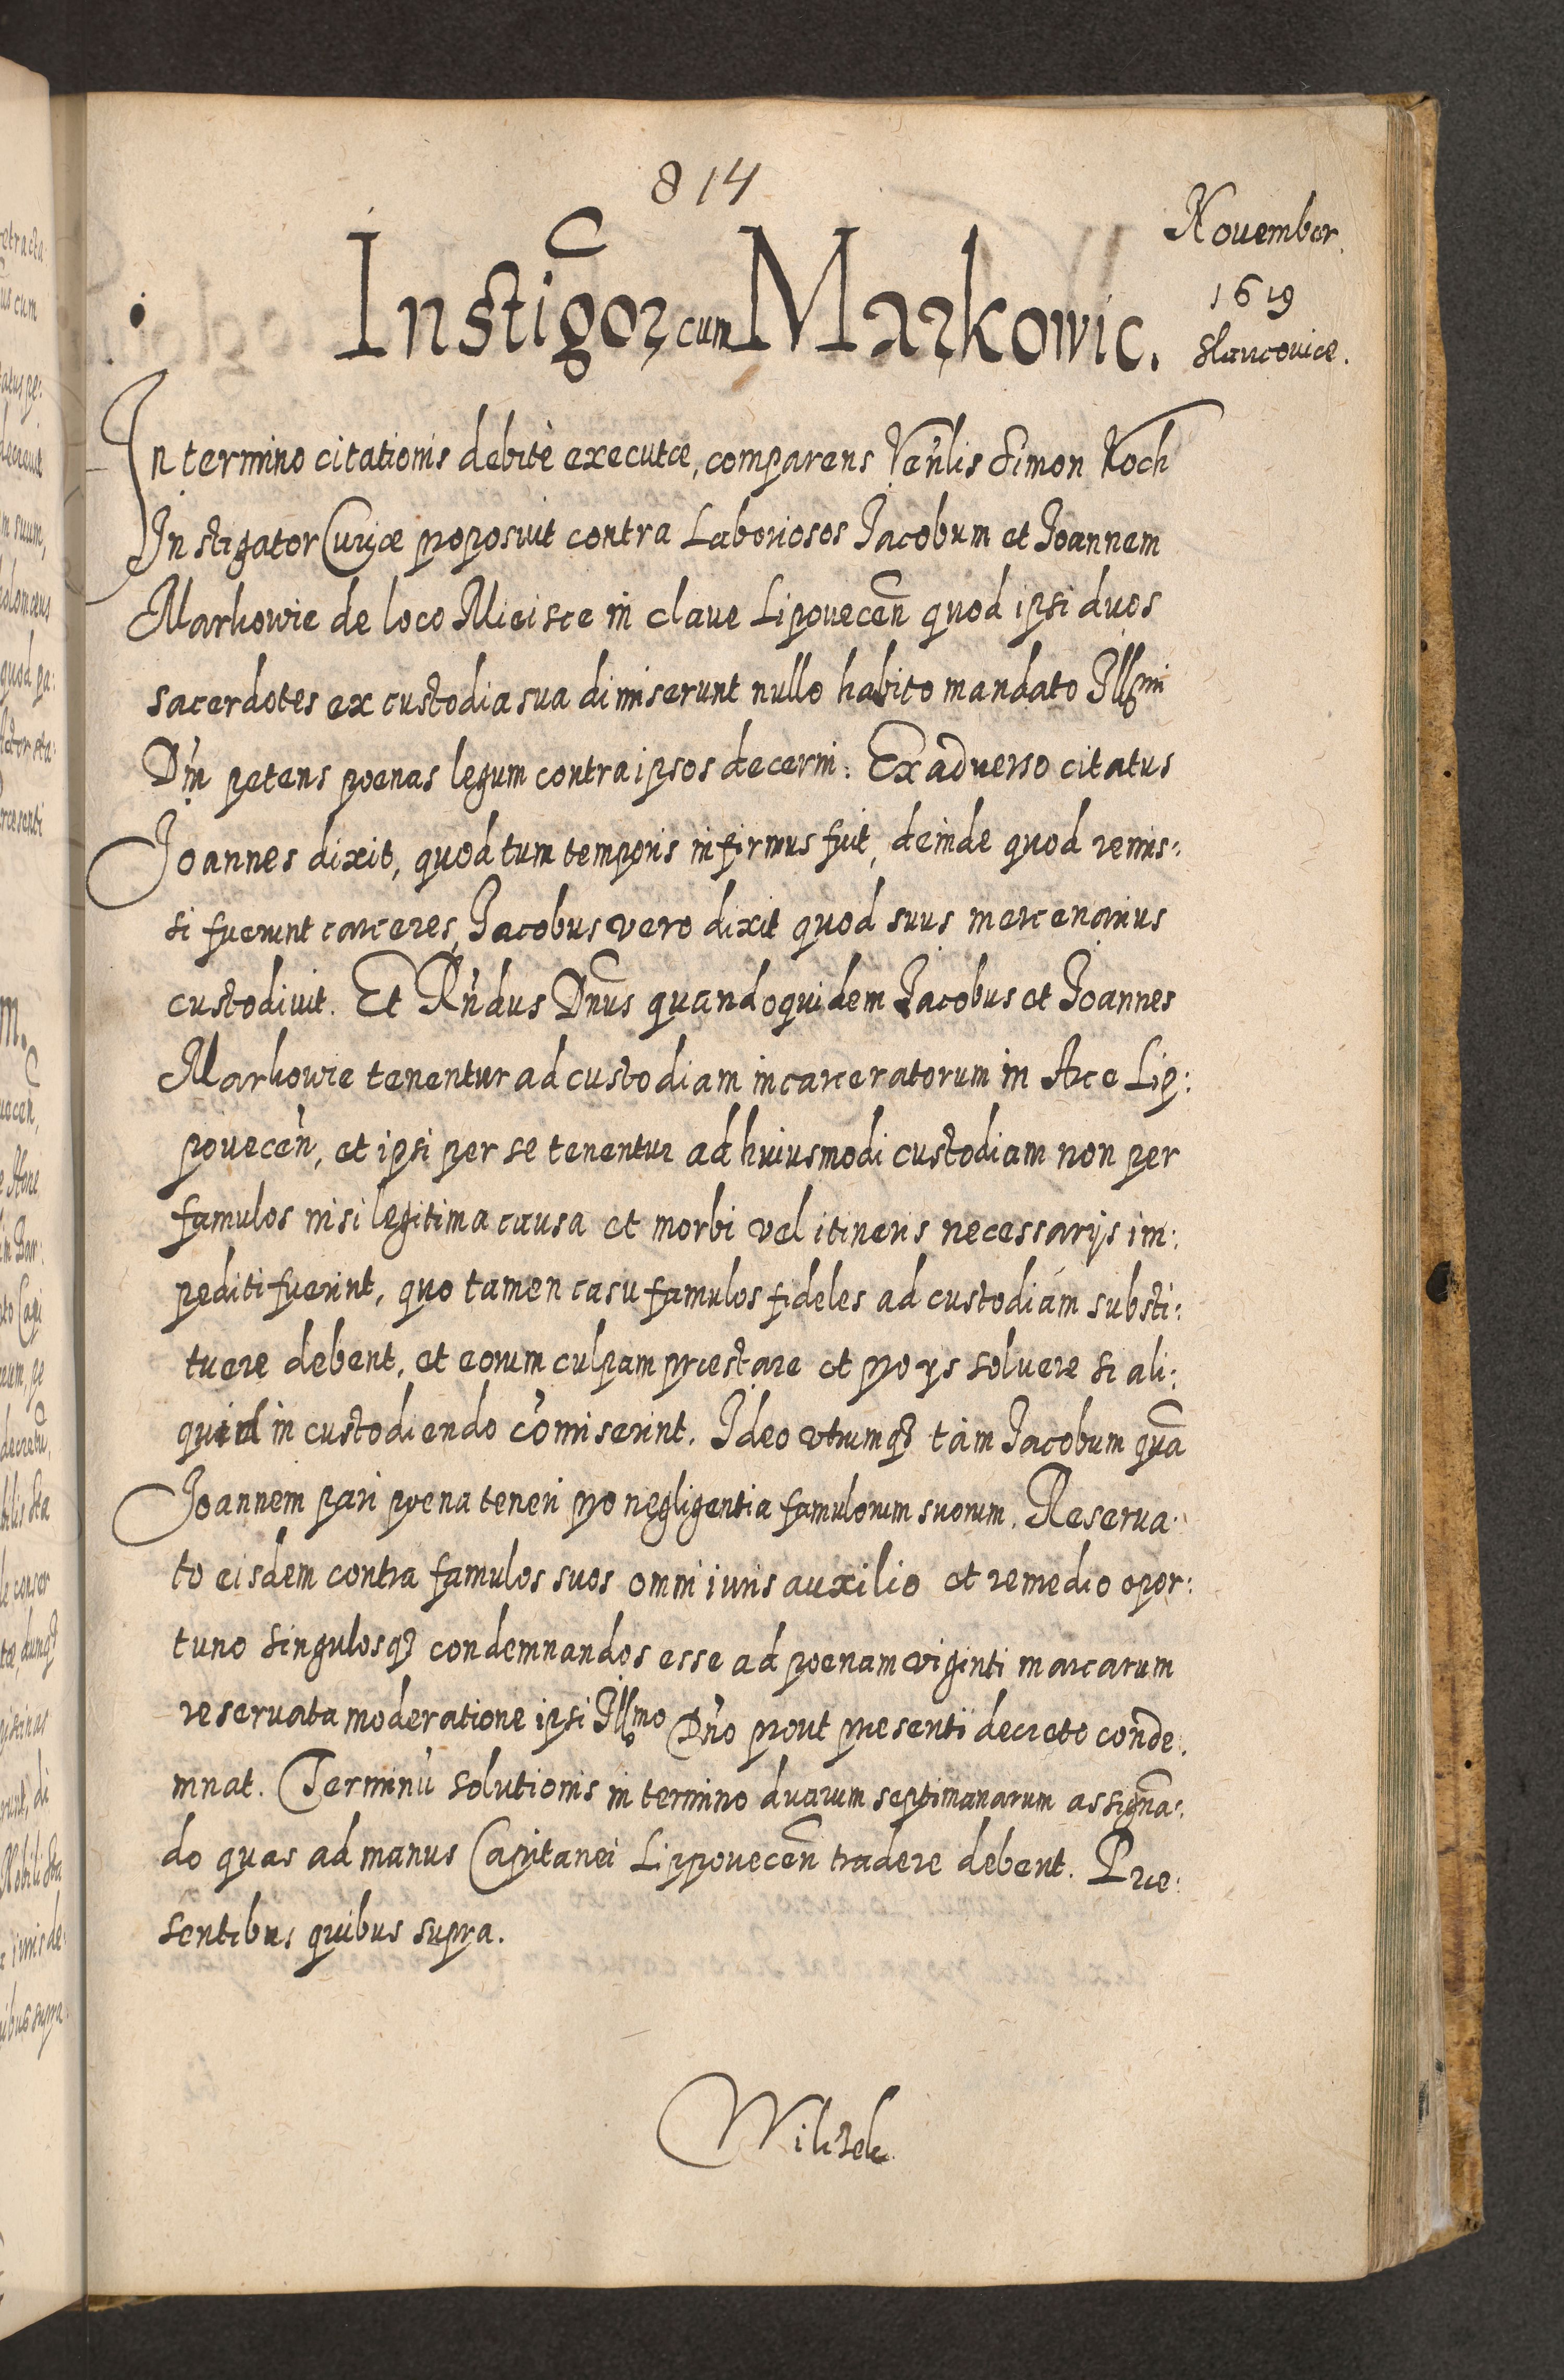 814
November.
1619
Slaucouiae.
Instigōr cum Markowic.
In termino citationis debitè executæ, comparens Ven'lis Simon Koch
Instigator Curiæ proposuit contra Laboriosos Jacobum et Joannem
Markowie de loco Mieisce in claue Lipouecen̄ quod ipsi duos
sacerdotes ex custodia sua dimiserunt nullo habito mandato Illmi
D'ni petens poenas legum contra ipsos decerni. Ex aduerso citatus
Joannes dixit, quod tum temporis infirmus fuit, deinde quod remis:
si fuerunt carceres, Jacobus vero dixit quod suus mercenarius
custodiuit. Et R'ndus Dn̄us quandoquidem Jacobus et Joannes
Markowie tenentur ad custodiam incarceratorum in Arce Lip:
pouecen̄, et ipsi per se tenentur ad huiusmodi custodiam non per
famulos nisi legitima causa et morbi vel itineris necessarijs im:
pediti fuerint, quo tamen casu famulos fideles ad custodiam substi:
tuere debent, et eorum culpam præstare et pro ijs soluere si ali:
quid in custodiendo co'miserint. Ideo vtrumq3 tàm Jacobum quā
Joannem pari poena teneri pro negligentia famulorum suorum. Reserua:
to eisdem contra famulos suos omni iuris auxilio et remedio opor:
tuno singulosq3 condemnandos esse ad poenam viginti marcarum
reseruata moderatione ipsi Illmo D'no prout præsenti decreto conde:
mnat. Terminū solutionis in termino duarum septimanarum assignā:
do quas ad manus Capitanei Lippouecen̄ tradere debent. Præ:
sentibus quibus supra.
Wilczek